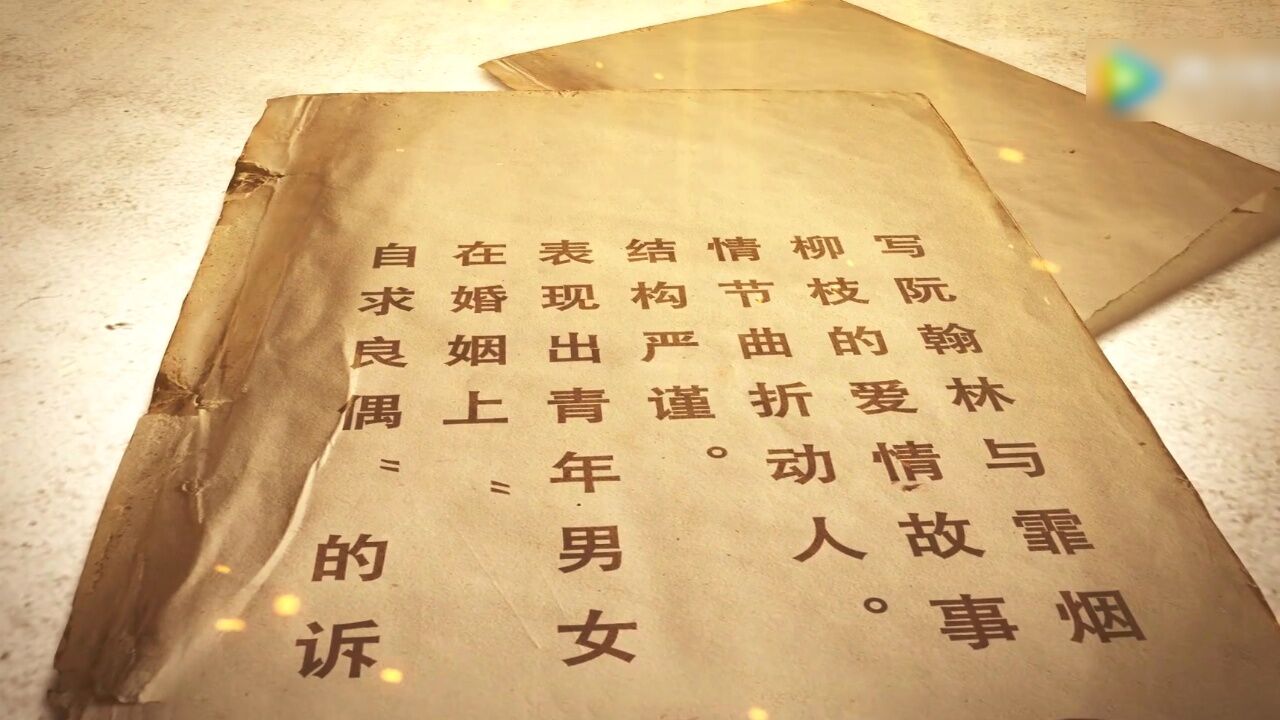 写阮翰林与霏烟
柳枝的爱情故事
情节曲折动人。
结构严谨。
表现出青年男女
在婚姻上“
自求良偶”的诉